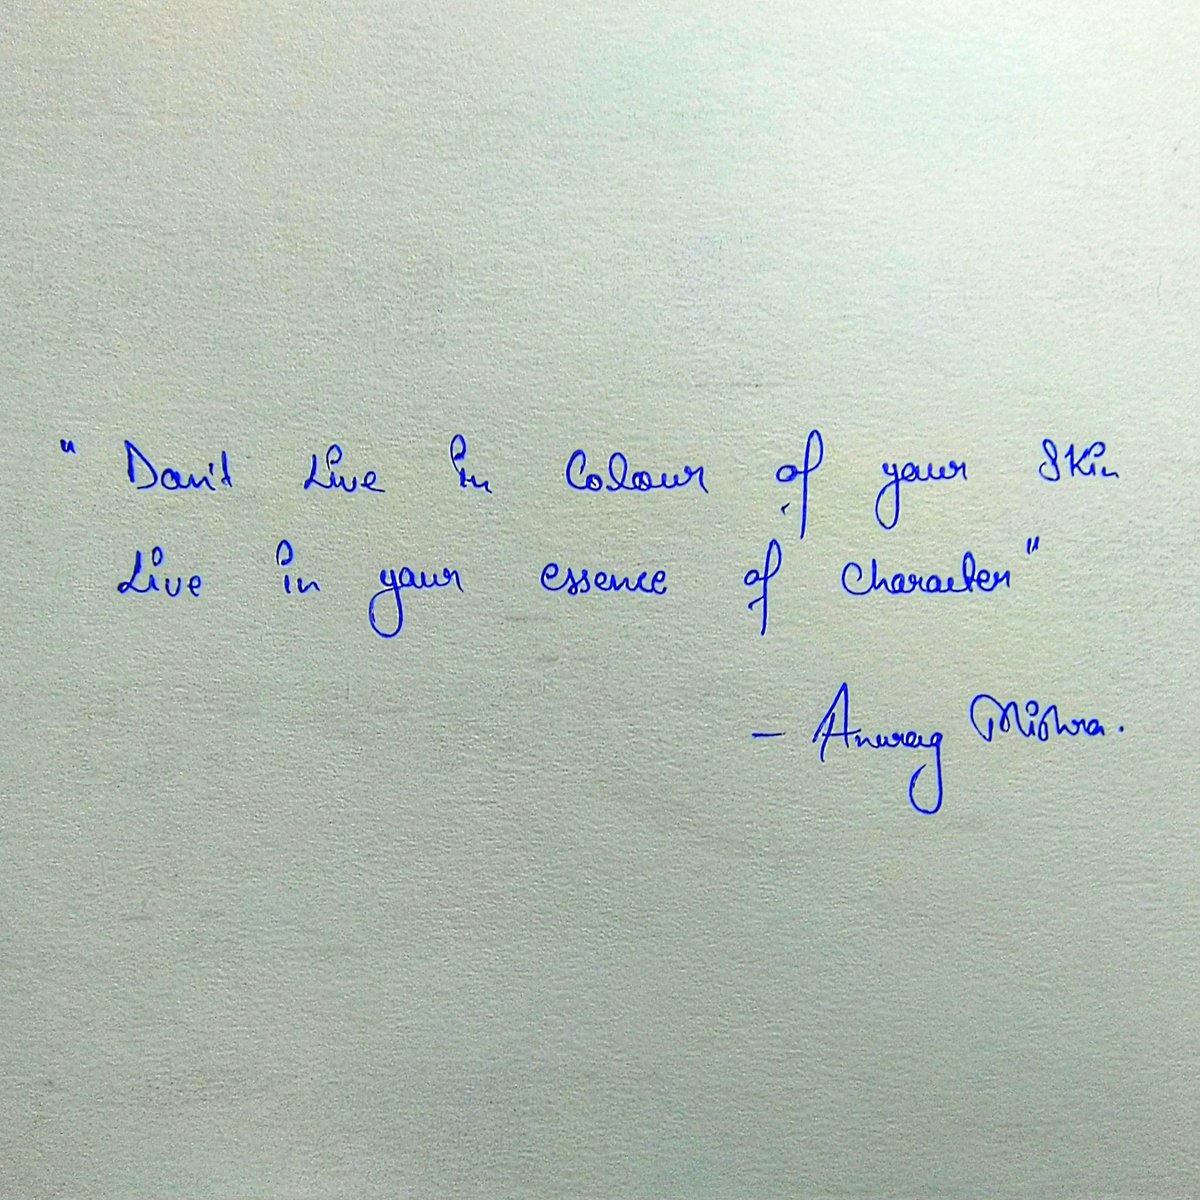 "Don't Live in Colour of your Skin
Live in your essence of Character"
- Anurag Mishra.